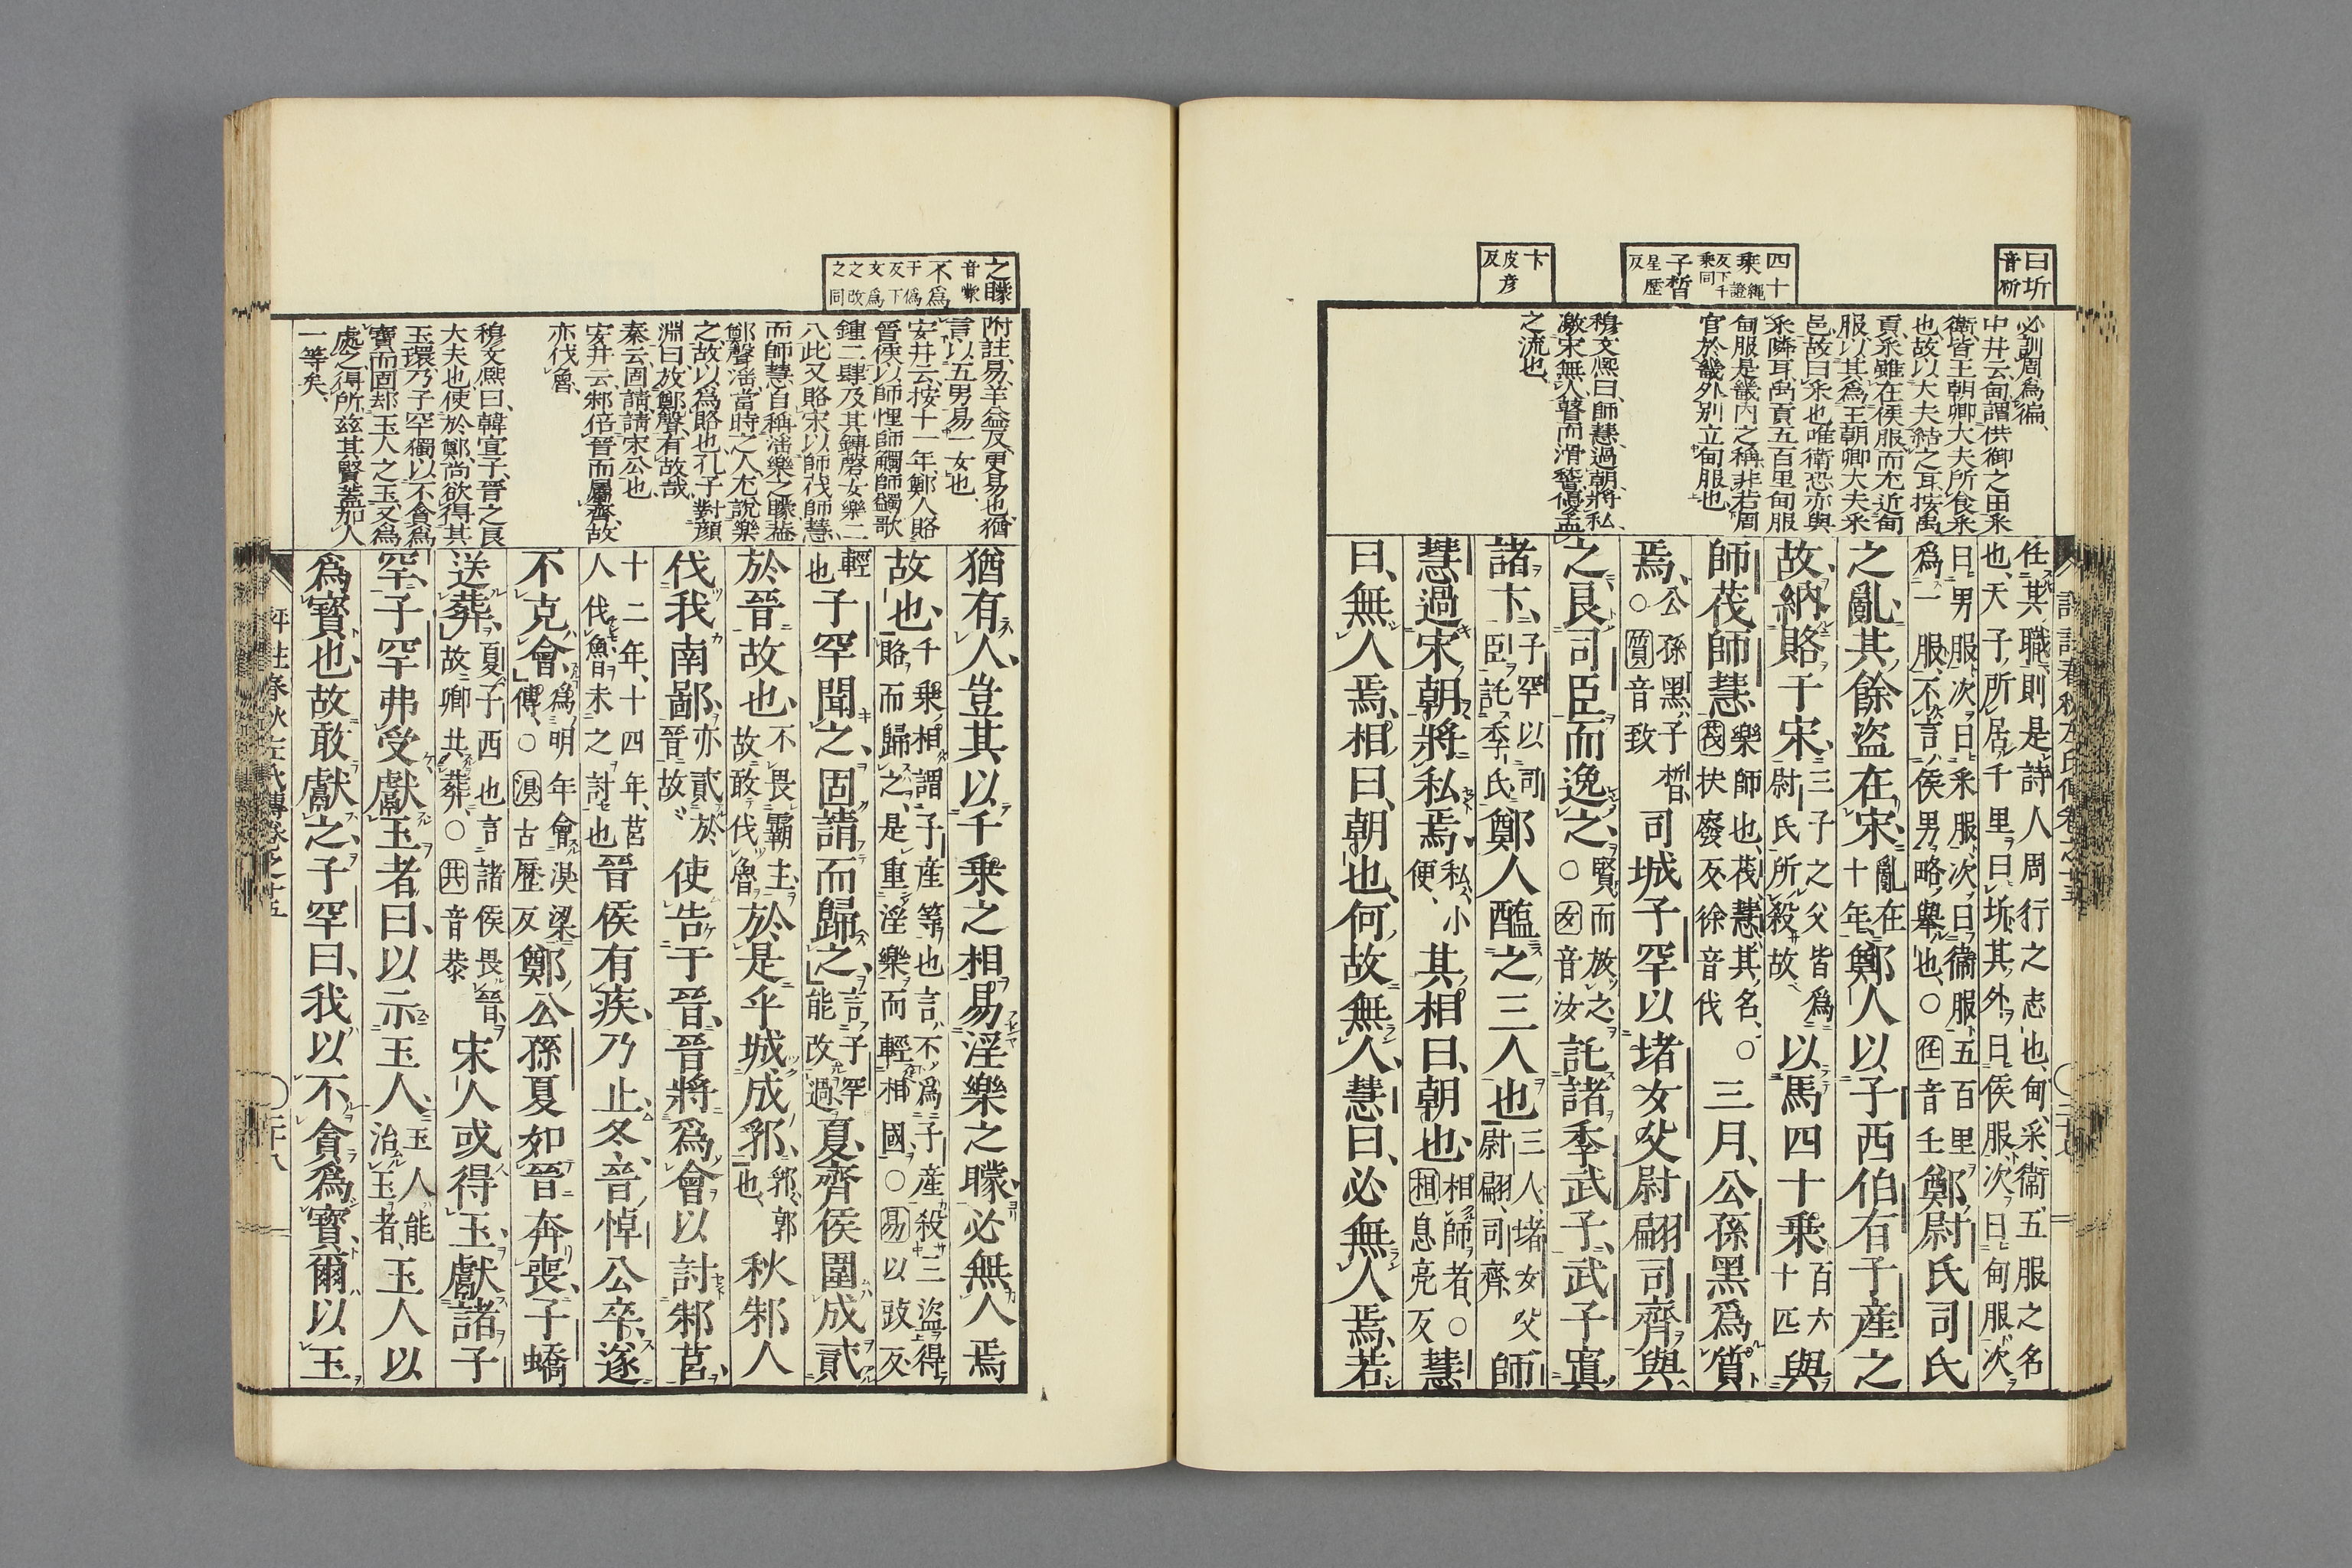 曰圻
音祈
四十
乗繩證
反下千
乗同
子晳
星歷
反
卞
皮彦
反
必訓周為徧
中井云甸謂供御之田采
衛皆王朝卿大夫所食采
也故以大夫結之耳按禹
貢采雖在侯服而尤近甸
服以其為王朝卿大夫采
邑故曰采也唯衛恐亦與
采隣耳禹貢五百里甸服
甸服是畿内之稱非若周
官於畿外別立甸服也
穆文熙曰師慧過朝將私
激宋無人瞽而滑䅲優孟
之流也
任其職則是詩人周行之志也甸采衛五服之名
也天子所居千里曰圻其外曰侯服次曰甸服次
曰男服次曰采服次曰衛服五百里
爲一服不言侯男略舉也○任音壬鄭尉氏司氏
之亂其餘盗在宋亂在
十年鄭人以子西伯有子産之
故納賂于宋三子之父皆爲
尉氏所殺故以馬四十乗百六
十匹與
師茷師慧樂師也茷慧其名○
茷扶廢反徐音伐三月公孫黑爲質
焉公孫黑子晳
○質音致司城子罕以堵女父尉翩司齊與
之良司臣而逸之賢而放之
○女音汝託諸季武子武子寘
諸卞子罕以司
臣託季氏鄭人醢之三人也三人堵女父
尉翩司齊師
慧過宋朝將私焉私小
便其相曰朝也相師者○
相息亮反慧
曰無人焉相曰朝也何故無人慧曰必無人焉若
之矇
音蒙
不爲
于僞
反下
女爲
之改
之同
附註易羊益反更易也猶
言以五男易一女也
安井云按十一年鄭人賂
晉侯以師悝師觸師蠲歌
鍾二肆及其鎛磬女樂二
八此又賂宋以師茷師慧
而師慧自稱淫樂之矇葢
鄭聲淫當時之人尤說樂
之故以爲賂也孔子對顔
淵曰放鄭聲有故哉
秦云固請請宋公也
安井云邾倍晉而屬齊故
亦伐魯
穆文熙曰韓宣子晉之良
大夫也使於鄭尚欲得其
玉環乃子罕獨以不貪爲
寶而固却玉人之玉又爲
處之得所茲其賢葢加人
一等矣
猶有人豈其以千乗之相易淫樂之矇必無人焉
故也千乗相謂子産等也言不爲子産殺三盗得
賂而歸之是重淫樂而輕相國○易以豉反
輕
也子罕聞之固請而歸之言子罕
能改過夏齊侯圍成貳
於晉故也不畏霸主
故敢伐魯於是乎城成郛郛郭
也秋邾人
伐我南鄙亦貳於
晉故使告于晉晉將爲會以討邾莒
十二年十四年莒
人伐魯未之討也晉侯有疾乃止冬晉悼公卒遂
不克會爲明年會溴梁
傳○溴古歷反鄭公孫夏如晉奔喪子蟜
送葬夏子西也言諸侯畏晉
故卿共葬○共音恭宋人或得玉獻諸子
罕子罕弗受獻玉者曰以示玉人玉人能
治玉者玉人以
爲寶也故敢獻之子罕曰我以不貪爲寶爾以玉